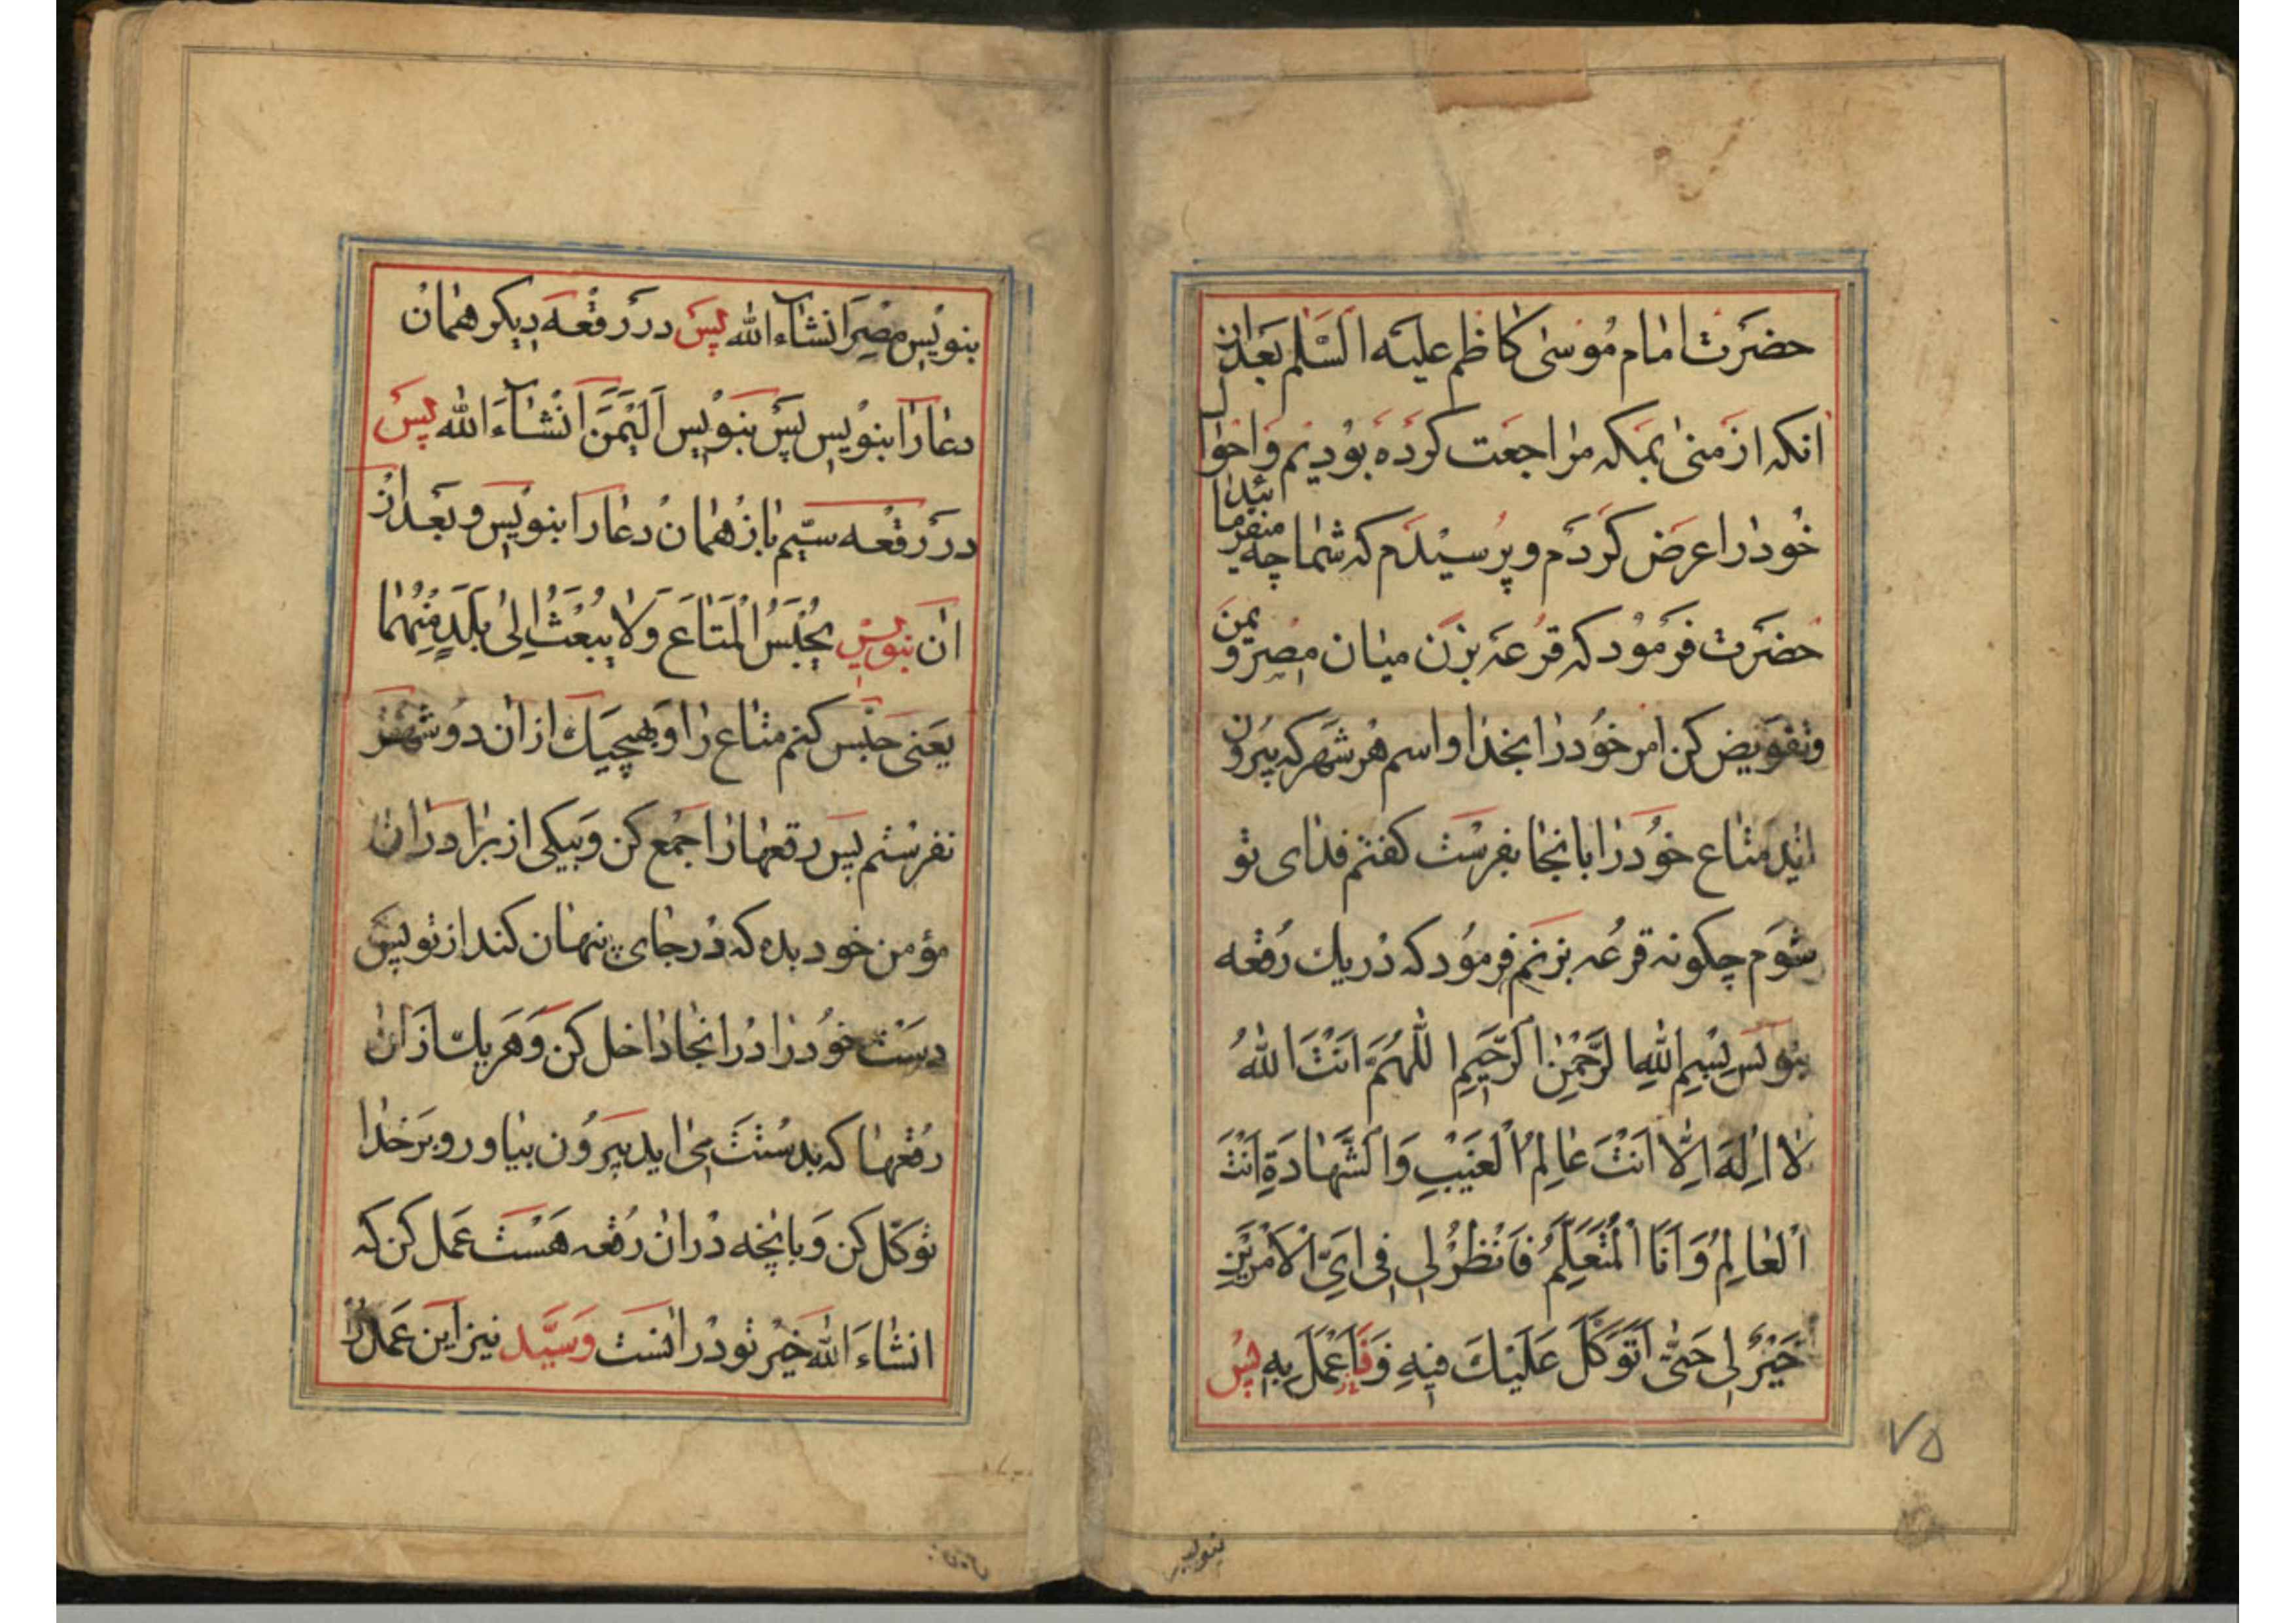 حضرت امام موسی کاظم علیه السلم بعد از
انکه از منی بمکه مراجعت کرده بودیم واحوال
خود را عرض کردم و پرسیدم که شما چه میفرمائید
حضرت فرمود که قرعه بزن میان مصر و یمن
وتفویض کن امر خود را بخدا و اسم هر شهر که بیرون
اید متاع خود را بانجا بفرست کفتم فدای تو
شوم چکونه قرعه بزنم فرمود که در یک رقعه
بنویس بِسْمِ اللهِ الرَّحْمٰنِ الرَّحِیمِ اللّٰهُمَّ اَنْتَ اللهُ
لٰا اِلٰهَ اِلّٰا اَنْتَ عٰالِمُ الْغَیْبِ وَالشَّهٰادَةِ اَنْتَ
الْعٰالِمُ وَاَنَا الْمُتَعَلِّمُ فَانْظُرْ لِی فِی اَیِّ الْاَمْرَیْنِ
خَیْرٌ لِی حَتّٰی اَتَوَکَّلَ عَلَیْكَ فِیهِ وَفَاِعْمَلَ بِهِ پس
۷۵
بنویس
بنویس مصر انشاء الله پس در رقعه دیکر همان
دعا را بنویس پس بنویس الیمن انشاء الله پس
در رقعه سیم باز همان دعا را بنویس و بعد از
ان بنویس یُحْبَسُ الْمَتٰاعَ وَلٰا یُبْعَثُ اِلیٰ بَلَدٍ مِنْهُمٰا
یعنی حبس کنم متاع را و بهیچیک از ان دو شهر
نفرستم پس رقعها را جمع کن و بیکی از برادران
مؤمن خود بده که در جای پنهان کند از تو پس
دست خود را در انجا داخل کن و هر یک از ان
رقعها که بدستت می اید بیرون بیاور و بر خدا
توکل کن و بانچه در ان رقعه هست عمل کن که
انشاء الله خیر تو در انست وسید نیز این عمل را